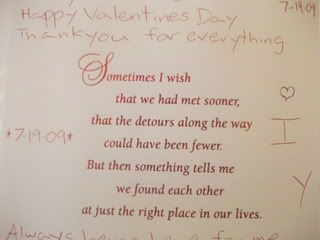 Happy Valentines Day
7-19-09
Thank you for everything
Sometimes I wish
that we had met sooner,
that the detours along the way
I
*7-19-09*
could have been fewer.
But then something tells me
Y
we found each other
at just the right place in our lives.
Always